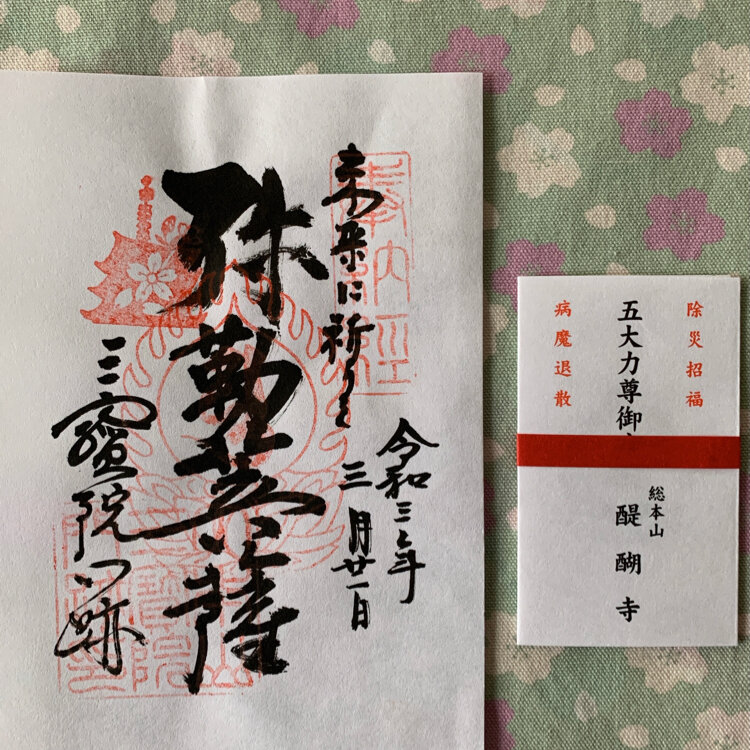 奉納経
未来に祈りを
令和三年
三月廿一日
弥勒菩薩
三寳院門跡
除災招福
五大力尊御
病魔退散
総本山
醍醐寺